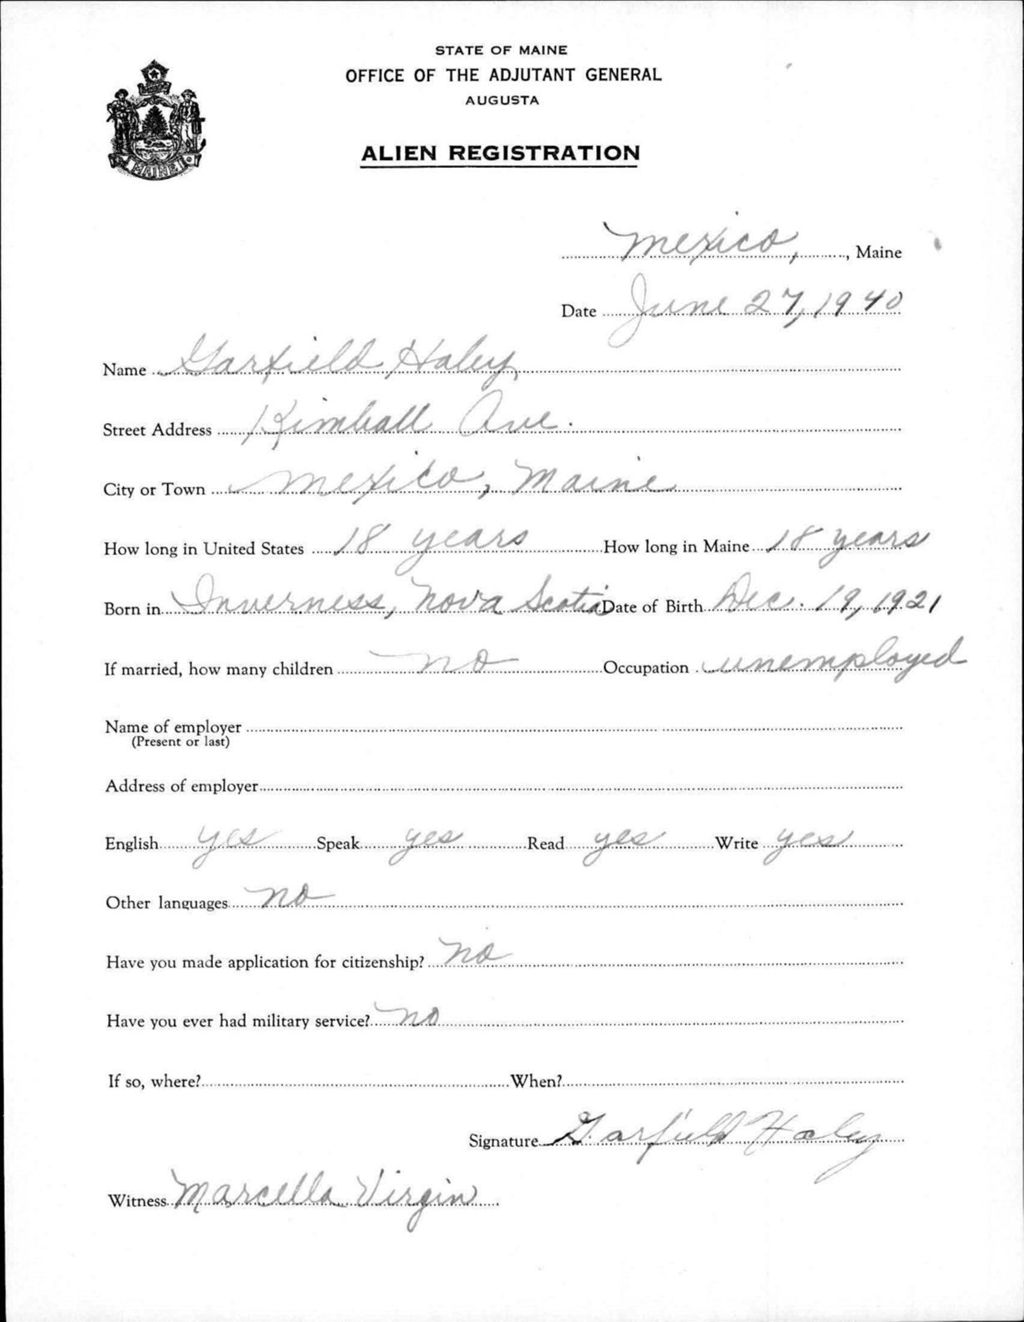 STATE OF MAINE
OFFICE OF THE ADJUTANT GENERAL
AUGUSTA
ALIEN REGISTRATION
MAINE
Mexico, , Maine
Date June 27, 1940
Name Garfield Haley
Street Address Kimball Ave.
City or Town Mexico, Maine
How long in United States 18 years How long in Maine 18 years
Born in Inverness, Nova Scotia Date of Birth Dec. 19, 1921
If married, how many children no Occupation unemployed
Name of employer
(Present or last)
Address of employer
English yes Speak yes Read yes Write yes
Other languages no
Have you made application for citizenship? no
Have you ever had military service? no
If so, where? When?
Signature Garfield Haley
Witness Marcella Virgin